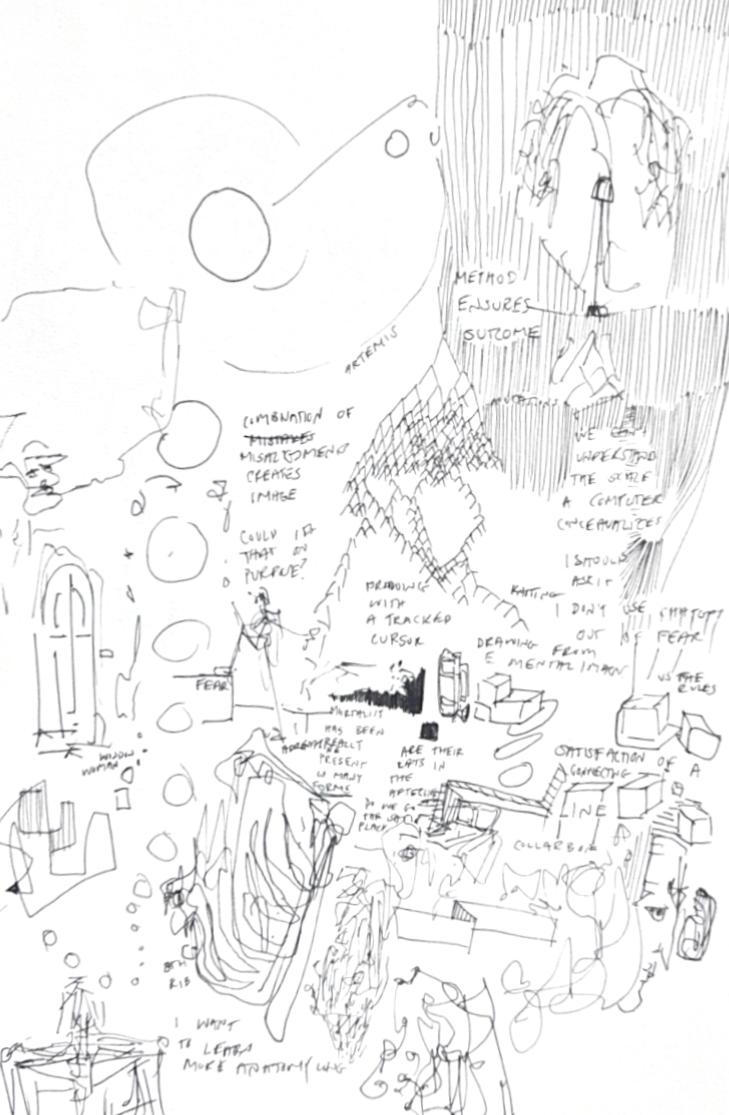 METHOD
ENSURES
OUTCOME
ARTEMIS
COMBINATION OF
MISTAKES
MISALIGNMENT
CREATES
IMAGE
COULD I
THAT ON
PURPOSE?
WE
UNDERSTAND
THE SCALE
A COMPUTER
CONCEPTUALIZES
I SHOULD
ASK IT
I DON'T USE CHATGPT
OUT OF FEAR
VS THE
RULES
DRAWING
WITH
A TRACKED
CURSOR
KNITTING
DRAWING
FROM
MENTAL IMAGE
FEAR
MORTALITY
HAS BEEN
REALLY
PRESENT
IN MANY
FORMS
ARE THEIR
RATS IN
THE
DO WE GO
PLACE
SATISFACTION OF A
CONNECTING
LINE
COLLARBONE
WINDOW
WOMAN
8TH
RIB
I WANT
TO LEARN
MORE ANATOMY